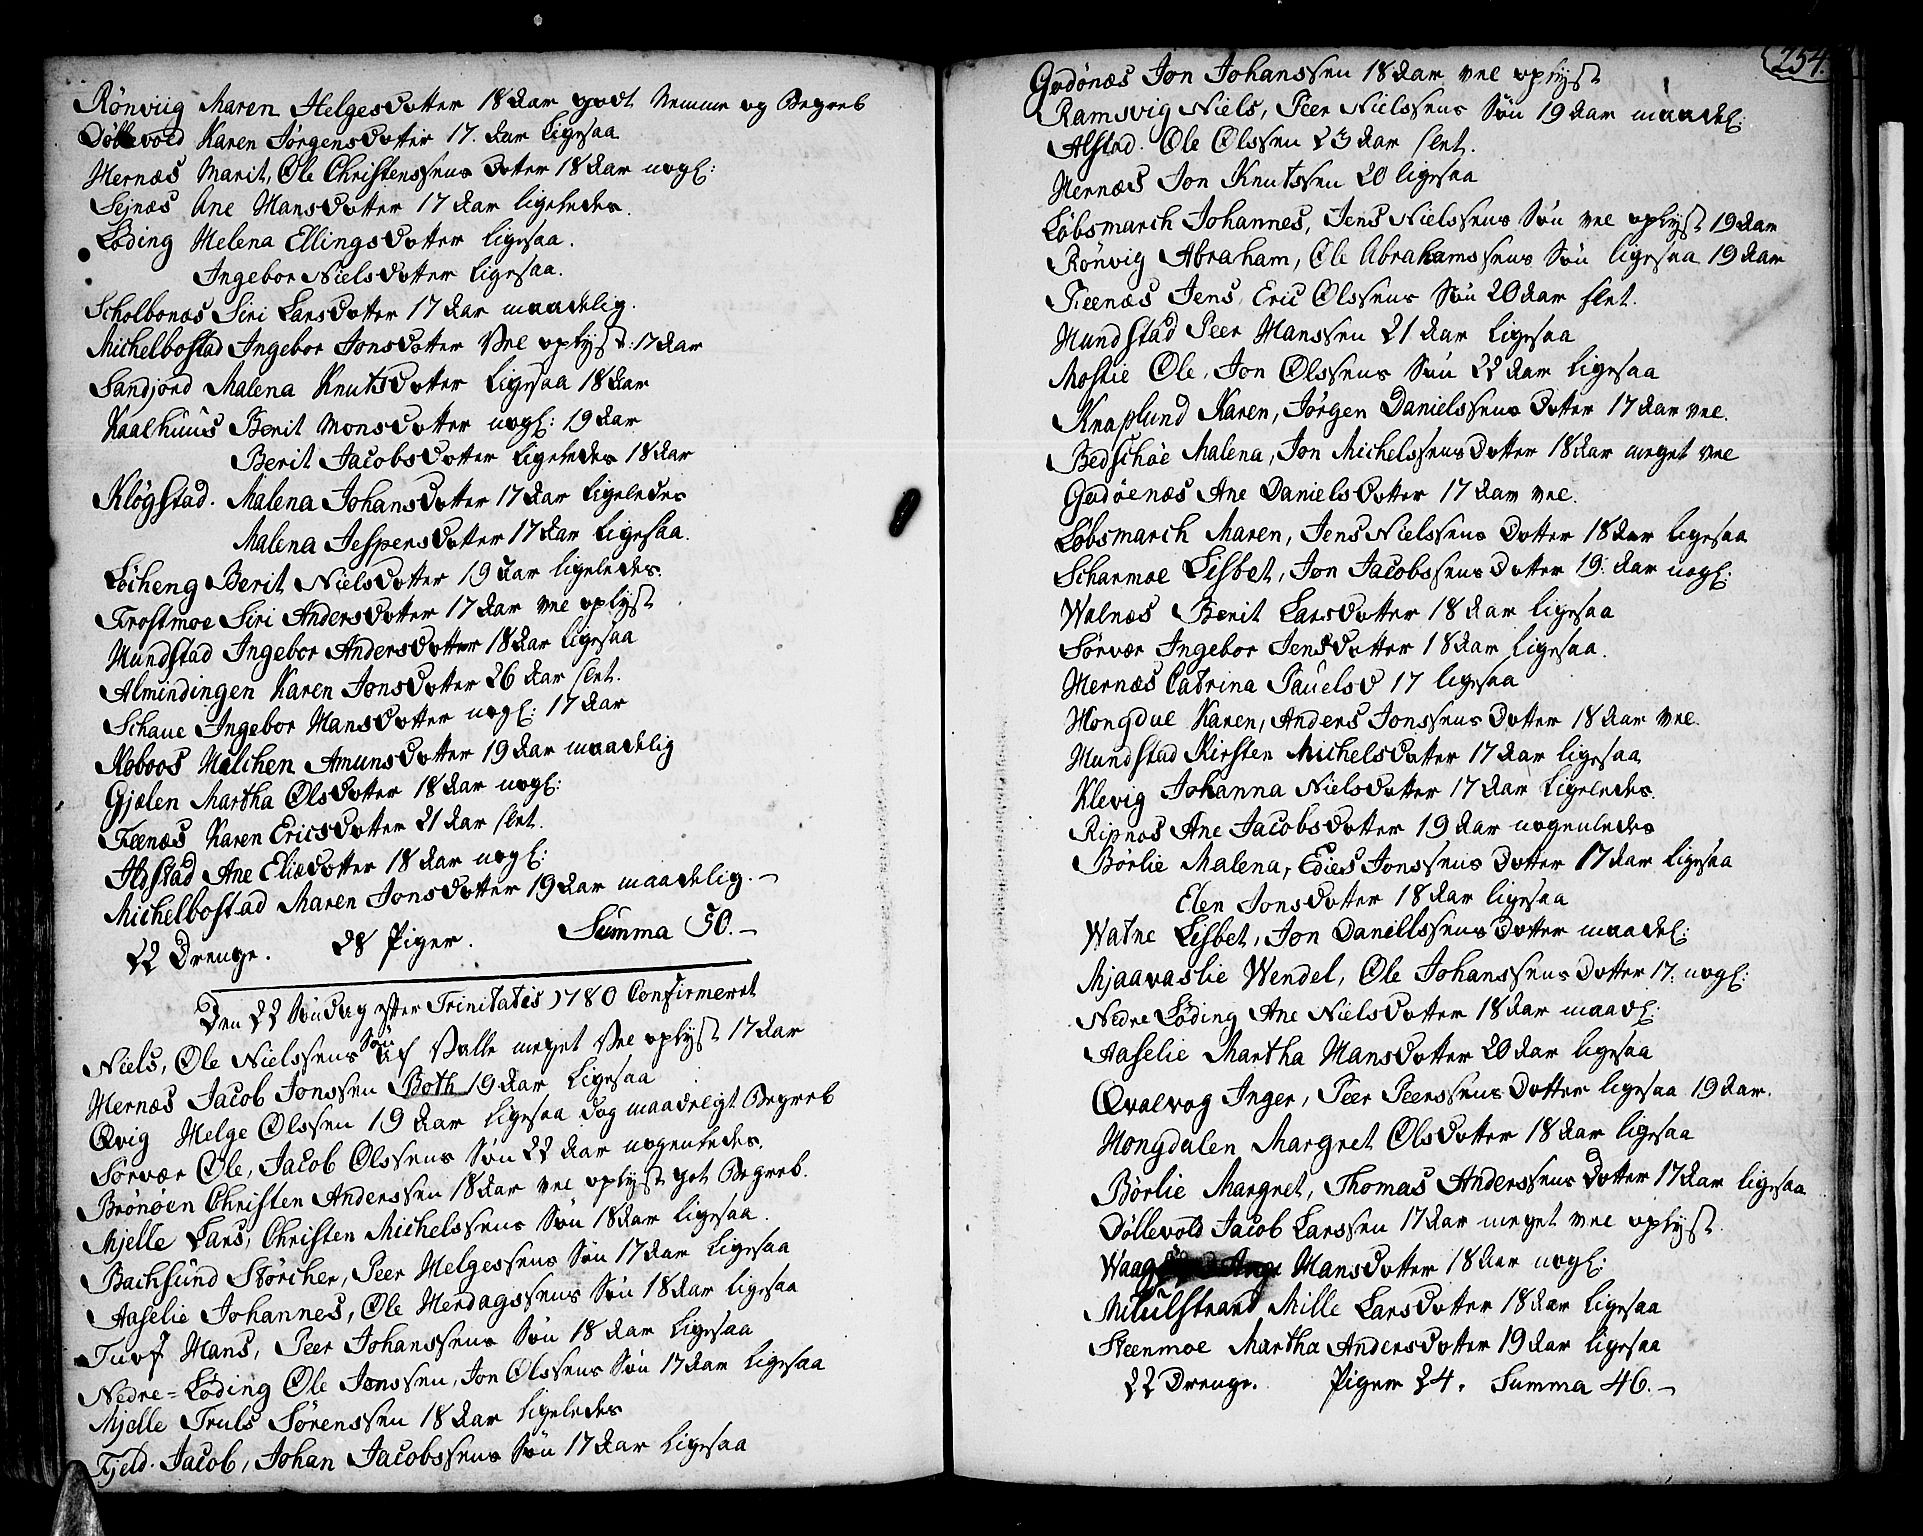 Rönviig Maren Helgesdotter 18 Aar godt Nemme og Begreb
Döllevold Karen Jörgensdotter 17. Aar Ligesaa
Hernæs Marit, Ole Christenssens Doter 18 Aar nogl:
Sejnæs Ane Hansdotter 17 Aar ligeledes.
Löding Helena Ellingsdotter ligesaa.
Ingebor Nielsdotter ligesaa.
Scholbonæs Siri Larsdotter 17 Aar maadelig.
Michelbostad Ingebor Jonsdotter Vel oplyst: 17 Aar
Sandjord Malena Knutsdotter Ligesaa 18 Aar
Kaalhuus Berit Monsdotter nogl: 19 Aar
Berit Jacobsdotter Ligeledes 18 Aar
Klögstad. Malena Johansdotter 17 Aar Ligeledes
Malena Jespersdotter 17 Aar Ligesaa.
Löcheng Berit Nielsdotter 19 Aar ligeledes.
Frostmoe Siri Andersdotter 17 Aar vel oplyst
Hundstad Ingebor Andersdotter 18 Aar ligesaa
Almindingen Karen Jonsdotter 26 Aar slet.
Schaue Ingebor Hansdotter nogl: 17 Aar
Koboos Melchen Amunsdotter 19 Aar maadelig
Gjælen Martha Olsdotter 18 Aar nogl:
Feenæs Karen Ericsdotter 21 Aar slet.
Ildstad Ane Eliædotter 18 Aar nogl:
Michelbostad Maren Jonsdotter 19 Aar maadelig. –
22 Drenge. 28 Piger. Summa 50. –
Den 22 Söndag efter Trinitatis 1780 Confirmeret
Niels, Ole Nielssens Sön af Valle meget Vel oplyst 17 Aar
Hernæs Jacob Jonssen Both 19 Aar Ligesaa
Qvig Helge Olssen 19 Aar Ligesaa dog maadeligt Begreb
Sörvær Ole, Jacob Olssens Sön 22 Aar nogenledes.
Brönöen Christen Anderssen 18 Aar vel oplyst got Begreb.
Mjelle Lars, Christen Michelssens Sön 18 Aar ligesaa.
Bachsund Störcher, Peer Helgessens Sön 17 Aar Ligesaa
Aaselie Johannes, Ole Herdagssens Sön 18 Aar ligesaa
Tuv Hans, Peer Johanssens Sön 18 Aar Ligesaa
Nedre=Löding Ole Jonssen, Jon Olssens Sön 17 Aar ligesaa
Mjelle Truls Sörenssen 18 Aar ligeledes
Fjeld. Jacob, Johan Jacobssens Sön 17 Aar Ligesaa
254.
Godönæs Jon Johanssen 18 Aar vel oplyst
Ramsvig Niels, Peer Nielssens Sön 19 Aar maadel:
Alstad. Ole Olssen 23 Aar slet.
Hernæs Jon Knutssen 20 ligesaa
Löbsmarch Johannes, Jens Nielssens Sön vel oplyst 19 Aar
Rönvig Abraham, Ole Abrahamssens Sön ligesaa 19 Aar
Feenæs Jens, Eric Olssens Sön 20 Aar slet.
Hundstad Peer Hanssen 21 Aar Ligesaa
Moslie Ole, Jon Olssens Sön 22 Aar ligesaa
Knaplund Karen, Jörgen Danielssens Dotter 17 Aar vel.
Bedschöe Malena, Jon Michelssens Dotter 18 Aar meget vel
Godöenæs Ane Danielsdotter 17 Aar vel.
Löbsmarch Maren, Jens Nielssens Dotter 18 Aar Ligesaa
Scharmoe Lisbet, Jon Jacobssens Dotter 19. Aar nogl:
Walnæs Berit Larsdotter 18 Aar ligesaa
Sörvær Ingebor Jensdotter 18 Aar ligesaa.
Hernæs Catrina Pauelsd 17 ligesaa
Hongdue Karen, Anders Jonssens Dotter 18 Aar Vel.
Hundstad Kirsten Michelsdotter 17 Aar ligesaa
Klevig Johanna Nielsdotter 17 Aar ligeledes.
Ripnæs Ane Jacobsdotter 19 Aar nogenledes
Börlie Malena, Edies Jonssens Dotter 17 Aar ligesaa
Elen Jonsdotter 18 Aar ligesaa
Watne Lisbet, Jon Daniellssens Dotter maadel:
Mjaavaslie Wendel, Ole Johanssens Dotter 17. nogl:
Nedre Löding Ane Nielsdotter 18 Aar maadl:
Aaselie Martha Hansdotter 20 Aar ligesaa
Qvalvog Inger, Peer Peerssens Dotter ligesaa 19 Aar.
Hongdalen Margret Olsdotter 18 Aar ligesaa
Börlie Margret, Thomas Anderssens Dotter 17 Aar ligesaa
Döllevold Jacob Larssen 17 Aar meget vel oplyst.
Hansdotter 18 Aar nogl:
Mulstrand Mille Larsdotter 18 Aar ligesaa
Steenmoe Martha Andersdotter 19 Aar ligesaa
22 Drenge. Piger 24. Summa 46. –